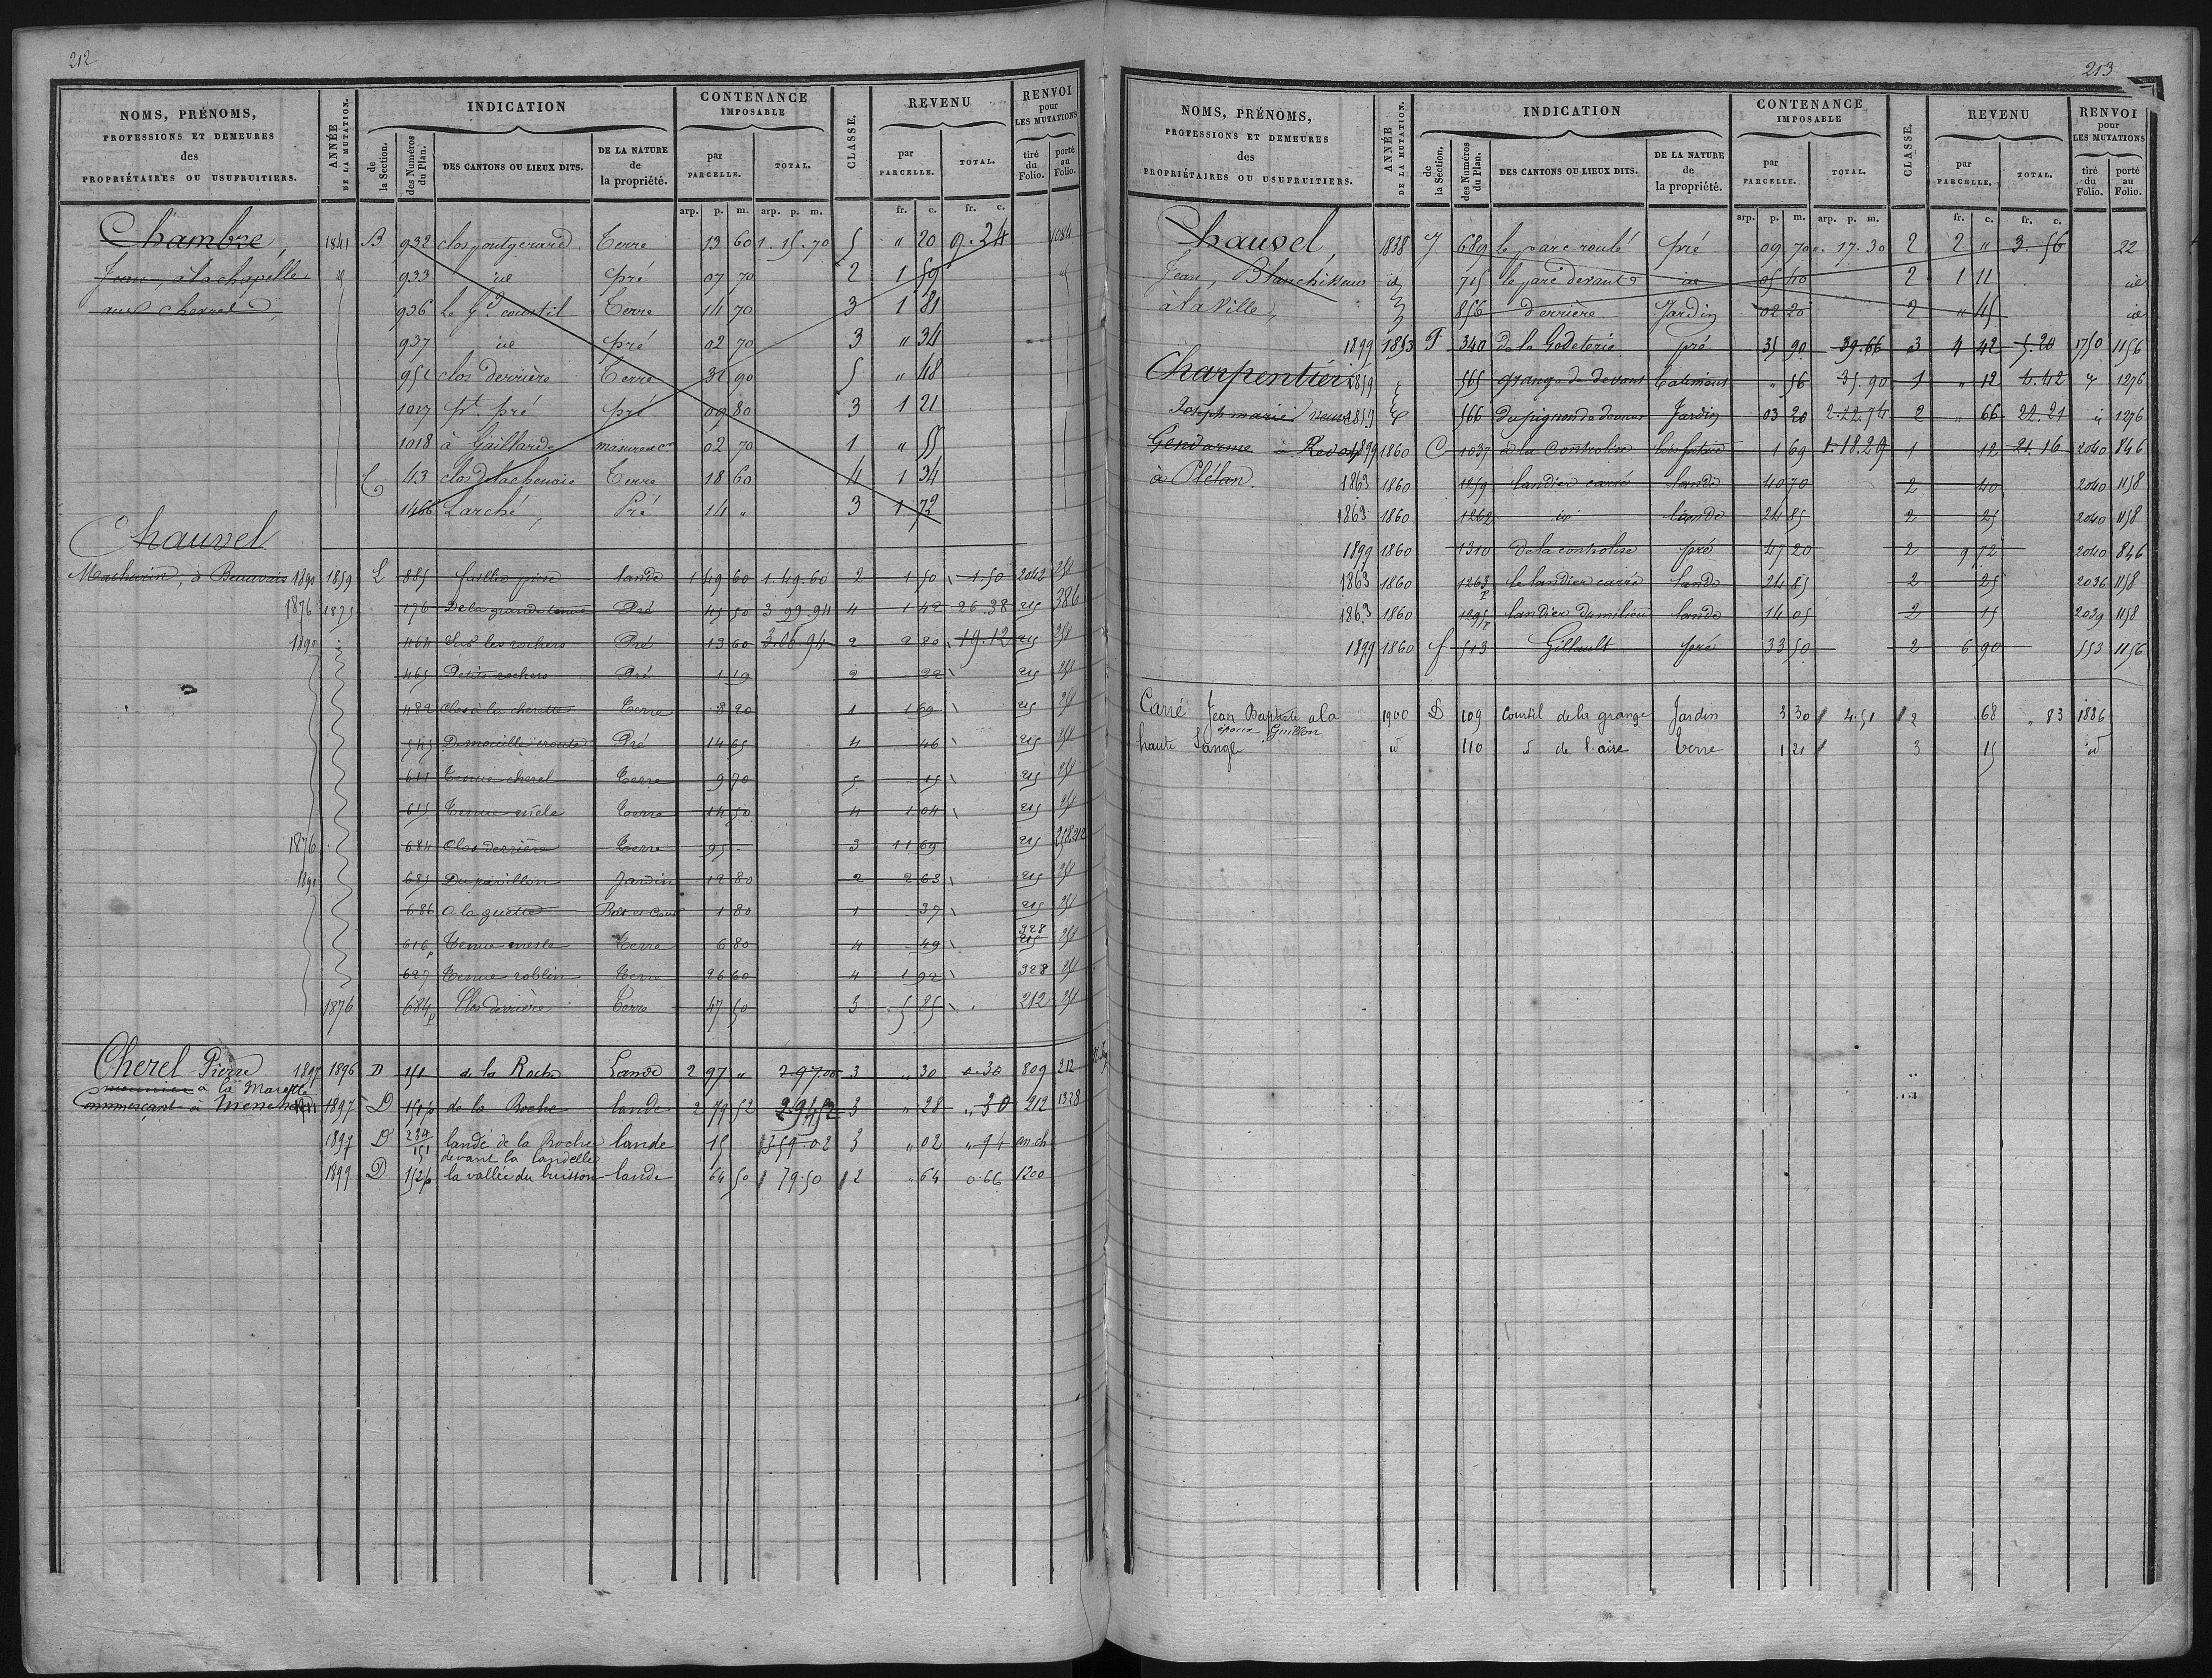 212
NOMS, PRÉNOMS, PROFESSIONS ET DEMEURES des PROPRIÉTAIRES OU USUFRUITIERS.
ANNÉE DE LA MUTATION.
INDICATION
de la Section.
des Numéros du Plan.
DES CANTONS OU LIEUX DITS.
DE LA NATURE de la propriété.
CONTENANCE IMPOSABLE
par PARCELLE.
TOTAL.
CLASSE.
REVENU
par PARCELLE.
TOTAL.
RENVOI pour LES MUTATIONS
tiré du Folio.
porté au Folio.
arp. p. m. arp. p. m. fr. c. fr. c.
Chambre, 1841 B 932 clos pontgerard Terre 13 60 1.15.70 5 " 20 9.24 1084
Jean, à la chapelle id 933 id pré 07 70 2 1 59 id
aux cherrel 936 Le Gd courtil Terre 14 70 3 1 81
937 id pré 02 70 3 " 34
951 clos derrière Terre 31 90 5 " 48
1017 pt pré pré 09 80 3 1 21
1018 à Gaillarde masure 02 70 1 " 55
C 43 clos Terre 18 60 4 1 34
1466 Larché, Pré 14 " 3 1 72
Chauvel
Mathurin, à Beauvais 1890 1859 L 885 lande 1 49 60 1.49.60 2 1 50 1.50 2042 251
1876 1875 176 De la grande tenue Pré 45 50 3 99.94 4 1 42 26.38 215 386
1890 464 Clos les rochers Pré 13 60 3.06.94 2 2 80 19.12 215 251
465 Petits rochers Pré 1 19 2 22 215 251
482 Clos à la cherette Terre 8 20 1 1 69 215 251
545 Pré 14 65 4 46 215 251
611 Tenue cherel Terre 9 70 5 15 215 251
615 Tenue Terre 14 50 4 1 04 215 251
1876 684 Clos derrière Terre 95 - 3 11 69 215 251.212
1890 685 Du pavillon Jardin 12 80 2 2 63 215 251
686 a la guette Bât et Cour 1 80 1 37 215 251
616p Tenue mesle Terre 6 80 4 49 928 215 251
627 Tenue roblin Terre 26 60 4 1 92 928 251
1876 684p Clos derrière Terre 47 50 3 5 85 212 251
Cherel Pierre 1897 1896 D 151 de la Roche Lande 2 97 " 2 97 00 3 " 30 0.30 809 212
meunier à la Marette
Commerçant à 1897 D 151p de la Roche lande 2 79 52 2 94 52 3 " 28 " 30 212 1328
1897 D 234/151 lande de la Roche lande 15 3 59.02 3 " 02 " 94 an.ch
devant la landelle
1899 D 152p la vallée du buisson lande 64 50 79.50 2 " 64 0.66 1200
213
NOMS, PRÉNOMS, PROFESSIONS ET DEMEURES des PROPRIÉTAIRES OU USUFRUITIERS.
ANNÉE DE LA MUTATION.
INDICATION
de la Section.
des Numéros du Plan.
DES CANTONS OU LIEUX DITS.
DE LA NATURE de la propriété.
CONTENANCE IMPOSABLE
par PARCELLE.
TOTAL.
CLASSE.
REVENU
par PARCELLE.
TOTAL.
RENVOI pour LES MUTATIONS
tiré du Folio.
porté au Folio.
arp. p. m. arp. p. m. fr. c. fr. c.
Chauvel, 1838 J 689 le parc roulé pré 09 70 0.17.30 2 2 " 3.56 22
Jean, Blanchisseur id 715 le parc devant id 05 40 2 1 11 id
à la Ville, 856 derrière Jardin 02 20 2 " 45 id
1899 1853 F 340 de la Godeterie pré 35 90 39.66 3 4 42 5.20 1750 1156
Charpentier 1859 565 grange de devant batiment " 56 35.90 1 " 12 4.42 1276
Joseph marie 1859 566 du pignon de devant Jardin 03 20 2.22.74 2 " 66 22.21 1276
Gendarme à Redon 1899 1860 C 1037 à la Controlise 1 69 1.18.29 1 12 21.16 2040 846
à Plélan. 1863 1860 1259 landier carré lande 40 70 2 40 2040 1158
1863 1860 1262 id lande 24 85 2 25 2040 1158
1899 1860 1310 de la controlise pré 47 20 2 9 72 2040 846
1863 1860 1263p le landier carré lande 24 85 2 25 2036 1158
1863 1860 1295p landier du milieu lande 14 05 2 15 2039 1158
1899 1860 f 513 Gillault pré 33 50 2 6 90 553 1156
Carré Jean Baptiste a la 1900 D 109 Courtil de la grange Jardin 3 30 4.51 2 68 " 83 1886
époux Guillon
haute Sangle id 110 d de l'aire terre 1 21 3 15 id